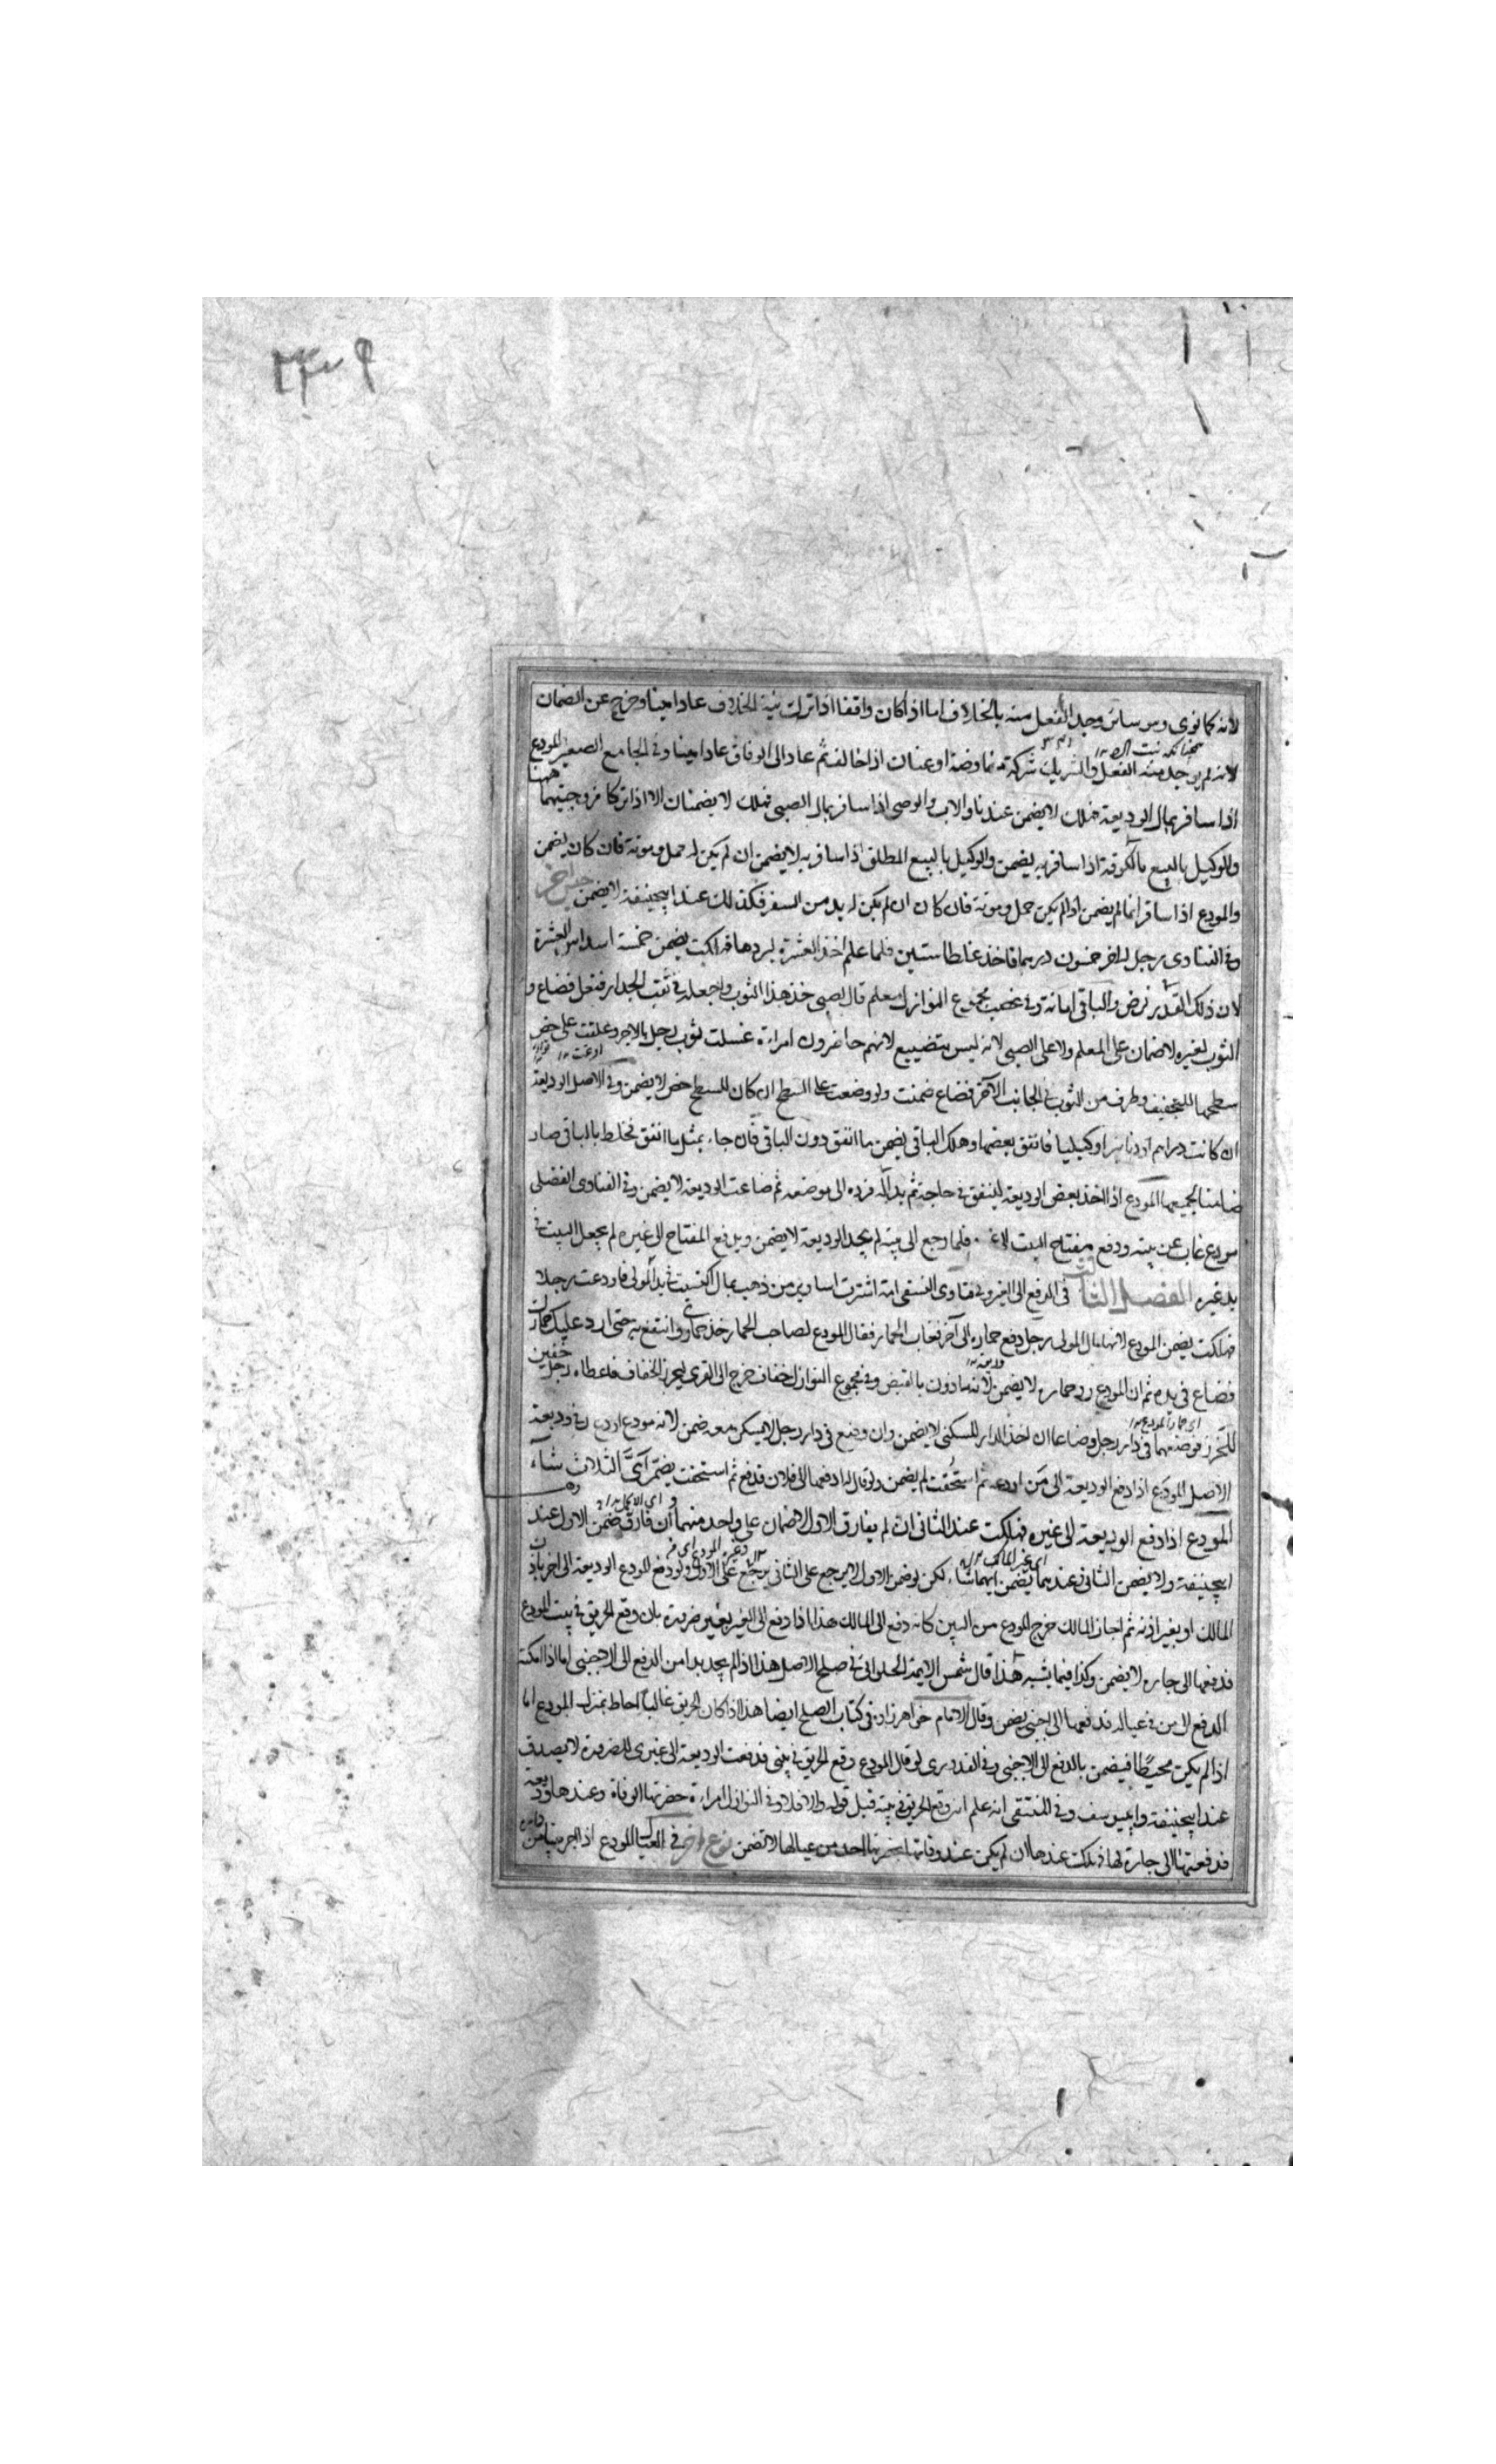 لانه كما نوى وهو سائر وجد الفعل منه بالخلاف اما اذا كان واقفا اذا ترك نية الخلاف عاد امينا وخرج عن الضمان
لانه لم يوجد منه الفعل والشريك شركة مفاوضة او عنان اذا خالف ثم عاد الى الوفاق عاد امينا وفى الجامع الصغير المودع
اذا سافر بمال الوديعة فهلك لا يضمن عندنا والاب والوصى اذا سافر بمال الصبى فهلك لا يضمنان الا اذا تركا زوجتيهما ههنا
والوكيل بالبيع بالكوفة اذا سافر به يضمن والوكيل بالبيع المطلق اذا سافر به لا يضمن ان لم يكن له حمل ومونة فان كان يضمن
والمودع اذا سافر انما لم يضمن اذا لم يكن حمل ومونة فان كان ان لم يكن له بد من السفر فكذلك عند ابيحنيفة لا يضمن جنس آخر
وفى الفتاوى رجل لاخر خمسون درهما فاخذ غلطا ستين فلما علم اخذ العشرة ليردها فهلكت يضمن خمسة اسداس العشرة
لان ذلك القدر قرض والباقى امانة وفى غصب مجموع النوازل معلم قال لصبى خذ هذا الثوب واجعله فى ثقب الجدار ففعل فضاع و
الثوب لغيره لا ضمان على المعلم ولا على الصبى لانه ليس بتضييع لانهم حاضرون امراءة غسلت ثوب رجل بالاجر وعلقت على خص
سطحها للتجفيف وطرف من الثوب فى الجانب الآخر فضاع ضمنت ولو وضعت على السطح ان كان للسطح خص لا يضمن وفى الاصل الوديعة
ان كانت دراهم او دنانير او كيليا فانفق بعضها وهلك الباقى يضمن ما انفق دون الباقى فان جاء بمثل ما انفق فخلط بالباقى صار
ضامنا لجميعها المودع اذا اخذ بعض الوديعة لينفق فى حاجته ثم بدا له فرده الى موضعه ثم ضاعت الوديعة لا يضمن وفى الفتاوى الفضلى
مودع غاب عن بيته ودفع مفتاح البيت فلما رجع الى بيته لم يجد الوديعة لا يضمن وبدفع المفتاح الى غيره لم يجعل البيت فى
يد غيره الفصل الثالث فى الدفع الى الغير وفى فتاوى النسفى امة اشترت اساوير من ذهب بمال اكتسبت فى يد المولى فاودعت رجلا
فهلكت يضمن المودع لانها مال المولى رجل دفع حماره الى آخر فغاب الحمار فقال المودع لصاحب الحمار خذ حمارى وانتفع به حتى ارد عليك حمارك
فضاع فى يده ثم ان المودع رد حماره لا يضمن لانه ماذون بالقبض وفى مجموع النوازل خفاف خرج الى القرى ليحرز الخفاف فاعطاه رجل خفين
للتحرز فوضعهما فى دار رجل وضاعا ان اخذ الدار للسكنى لا يضمن وان وضع فى دار رجل لا يسكن معه ضمن لانه مودع اودع وفى وديعة
الاصل المودع اذا دفع الوديعة الى من اودعه ثم استحقت لم يضمن ولو قال له ادفعها الى فلان فدفع ثم استحقت يضمن اى الثلاث شاء
المودع اذا دفع الوديعة الى غيره فهلكت عند الثانى ان لم يفارق الاول لا ضمان على واحد منهما وان فارق ضمن الاول عند
ابيحنيفة ولا يضمن الثانى وعندهما يضمن ايهما شاء لكن لو ضمن الاول لا يرجع على الثانى يرجع على الاول ولو دفع المودع الوديعة الى اخر باذن
المالك او بغير اذنه ثم اجاز المالك خرج المودع من البين كانه دفع الى المالك هذا اذا دفع الى الغير بغير ضرورة بان وقع الحريق فى بيت المودع
فدفعها الى جاره لا يضمن وكذا فيما يشبه هذا قال شمس الايمة الحلوانى فى صلح الاصل هذا اذا لم يجد بدا من الدفع الى الاجنبى اما اذا امكنه
الدفع الى من فى عياله فدفعها الى اجنبى يضمن وقال الامام خواهرزاده فى كتاب الصلح ايضا هذا اذا كان الحريق غالبا احاط بمنزل المودع اما
اذا لم يكن محيطا فيضمن بالدفع الى الاجنبى وفى القدورى لو قال المودع وقع الحريق فى بيتى فدفعت الوديعة الى غيرى للضرورة لا يصدق
عند ابيحنيفة وابييوسف وفى المنتقى انه علم انه وقع الحريق فى بيته قبل قوله والا فلا وفى النوازل امراءة حضرتها الوفاة وعندها وديعة
فدفعتها الى جارة لها فهلكت عندها ان لم يكن عند وفاتها بحضرتها احد من عيالها لا تضمن نوع اخر فى العيال المودع اذا اجر بيتا من